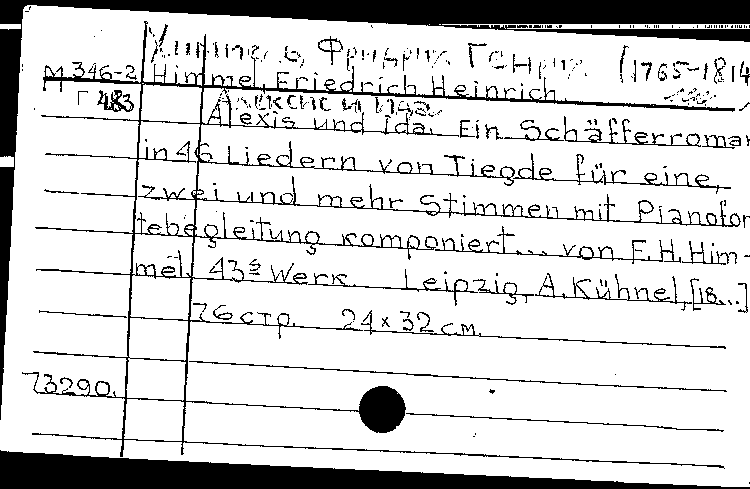 Химмель, Фридрих Генрих (1765-1814
М 346-2 Himmel, Friedrich Heinrich.
Г 483 Алексис и Ида
Alexis und Ida. Ein Schäfferroman
in 46 Liedern von Tiegde für eine,
zwei und mehr Stimmen mit Pianofor
tebegleitung komponiert... von F.H.Him-
mel. 43s Werk. Leipzig, A.Kühnel,[18...]
76 стр. 24 x 32 см.
73290.